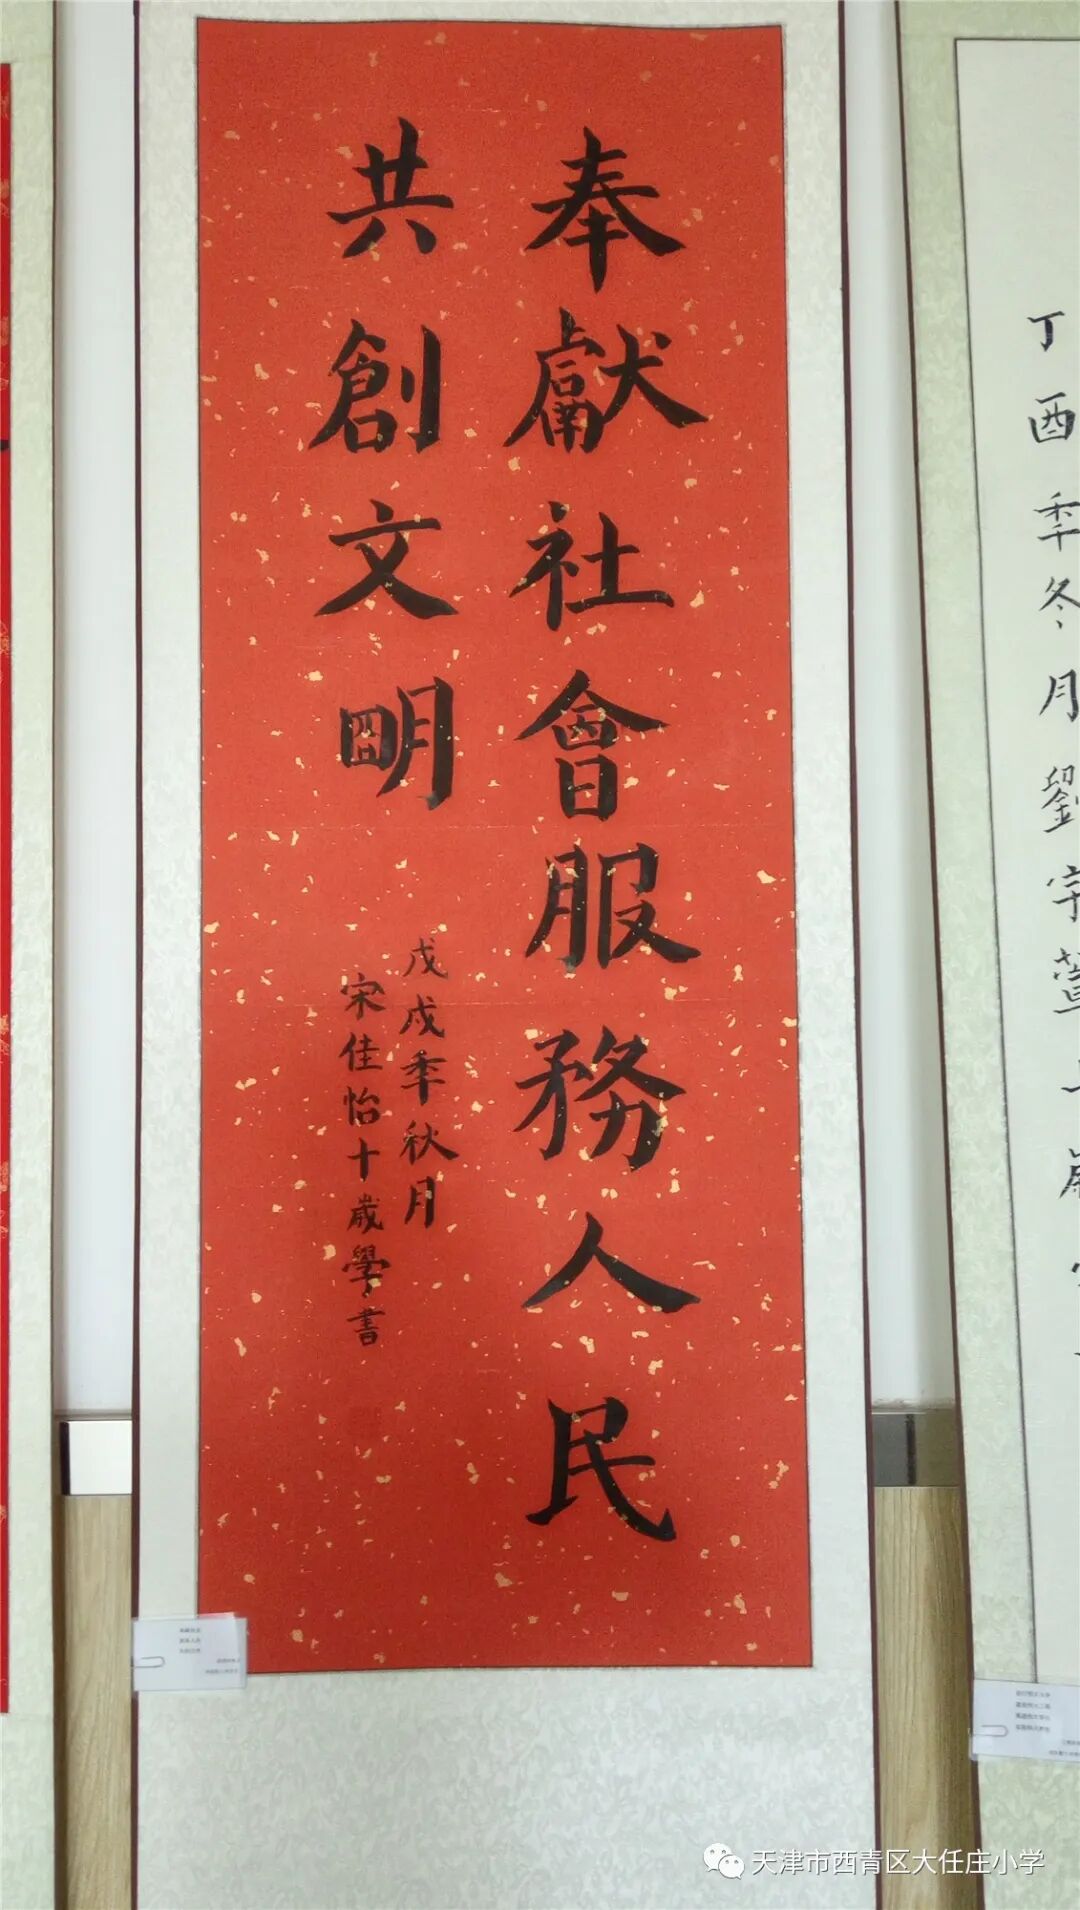 奉獻社會服務人民
共創文明
戊戌季秋月
宋佳怡十歲學書
丁酉季冬月劉宇
天津市西青区大任庄小学